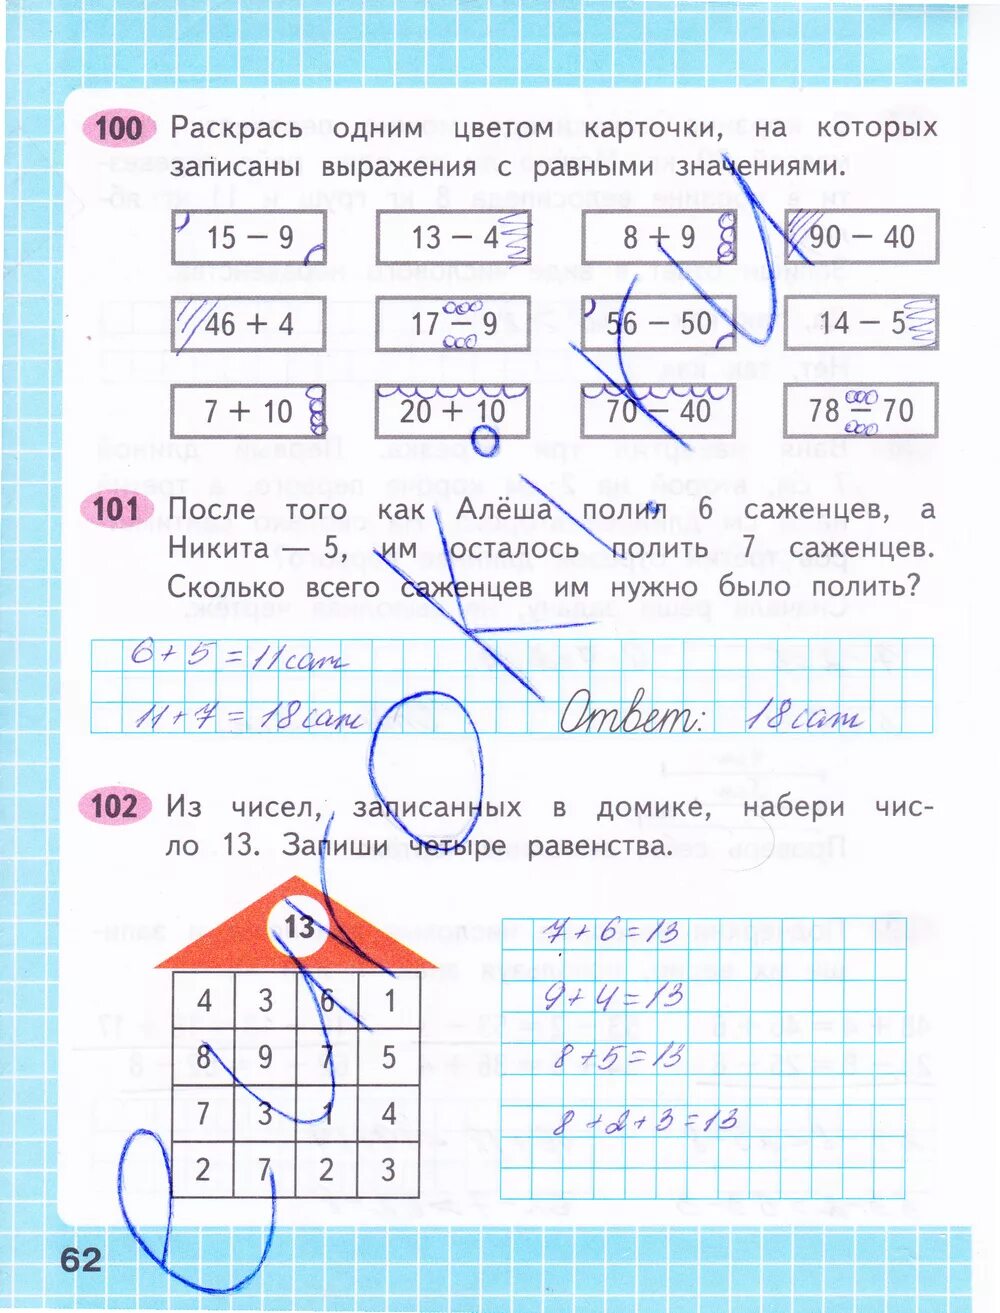 100 Раскрась одним цветом карточки, на которых
записаны выражения с равными значениями.
15 – 9 13 – 4 8 + 9 90 – 40
46 + 4 17 – 9 56 – 50 14 – 5
7 + 10 20 + 10 70 – 40 78 – 70
101 После того как Алёша полил 6 саженцев, а
Никита – 5, им осталось полить 7 саженцев.
Сколько всего саженцев им нужно было полить?
6 + 5 = 11 саж
11 + 7 = 18 саж Ответ: 18 саж
102 Из чисел, записанных в домике, набери чис-
ло 13. Запиши четыре равенства.
13
4 3 6 1
8 9 7 5
7 3 1 4
2 7 2 3
7 + 6 = 13
9 + 4 = 13
8 + 5 = 13
8 + 2 + 3 = 13
62